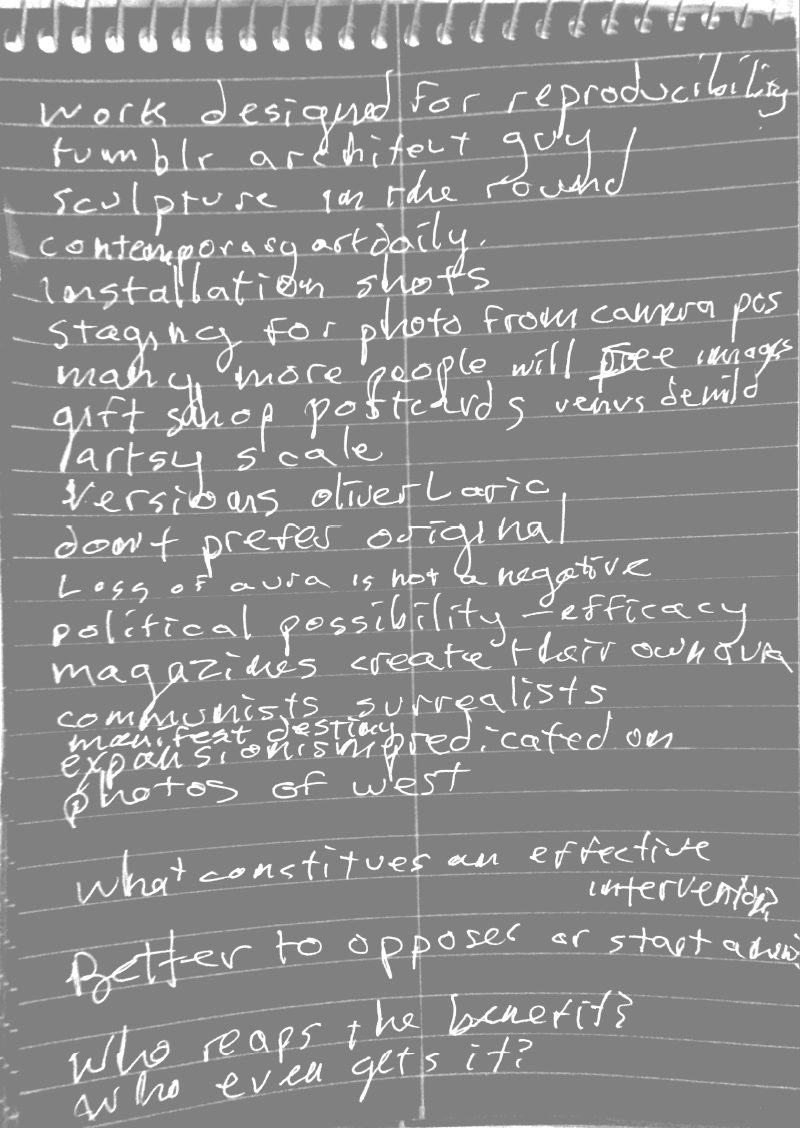 work designed for reproducibility
tumblr architect guy
sculpture in the round
contemporaryartdaily.
installation shots
staging for photo from camera pos
many more people will see images
gift shop postcards venus demilo
/artsy scale
Versions oliverLaric
dont prefer original
Loss of aura is not a negative
political possibility – efficacy
magazines create their own aura
communists surrealists
manifest destiny
expansionism predicated on
photos of west
What constitues an effective
intervention?
Better to opposes or start anew?
Who reaps the benefit?
Who even gets it?